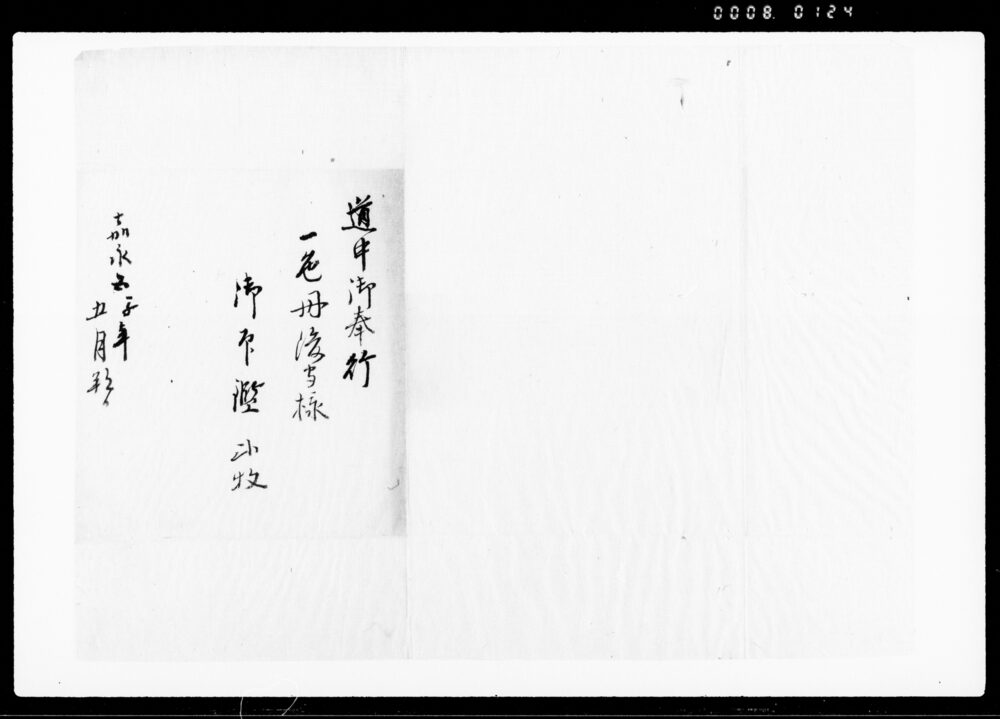 0008. 0124
道中御奉行
一色丹後守様
御印鑑 小牧
嘉永五子年
五月